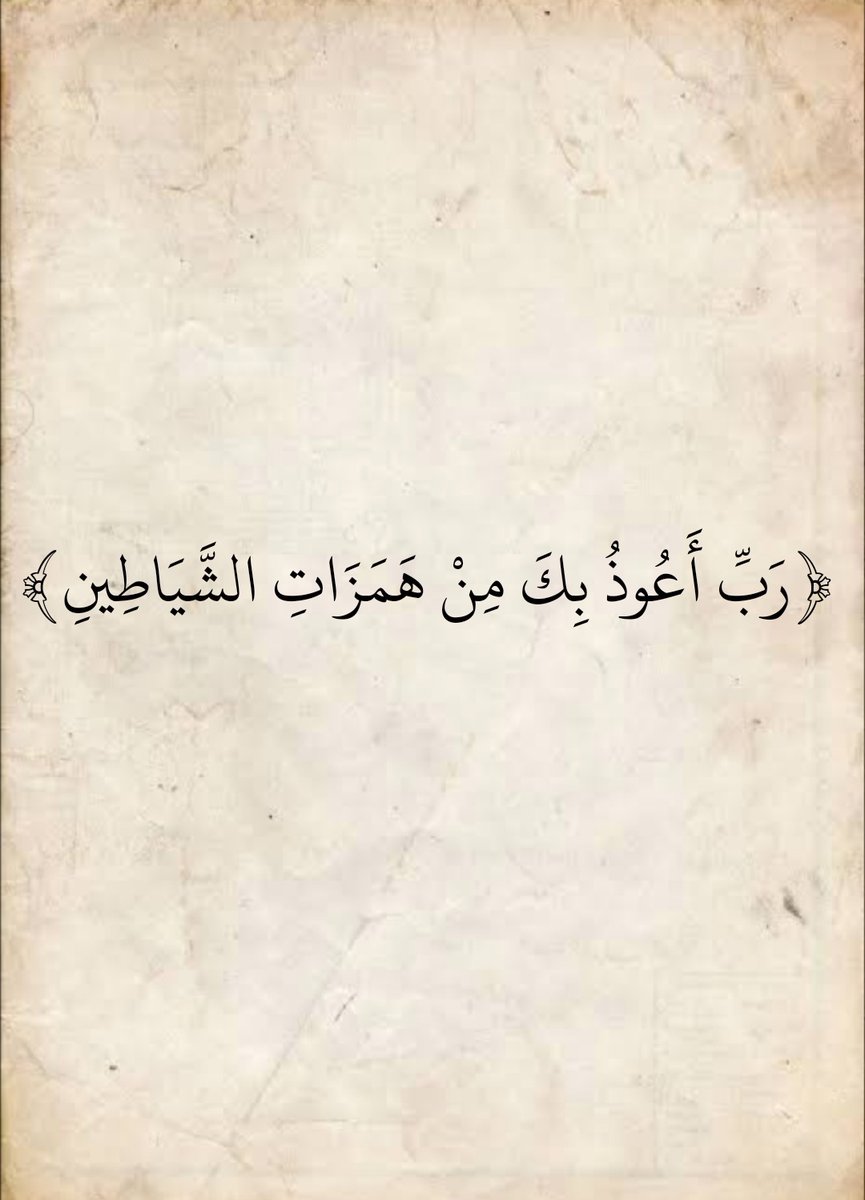 ﴿رَبِّ أَعُوذُ بِكَ مِنْ هَمَزَاتِ الشَّيَاطِينِ﴾